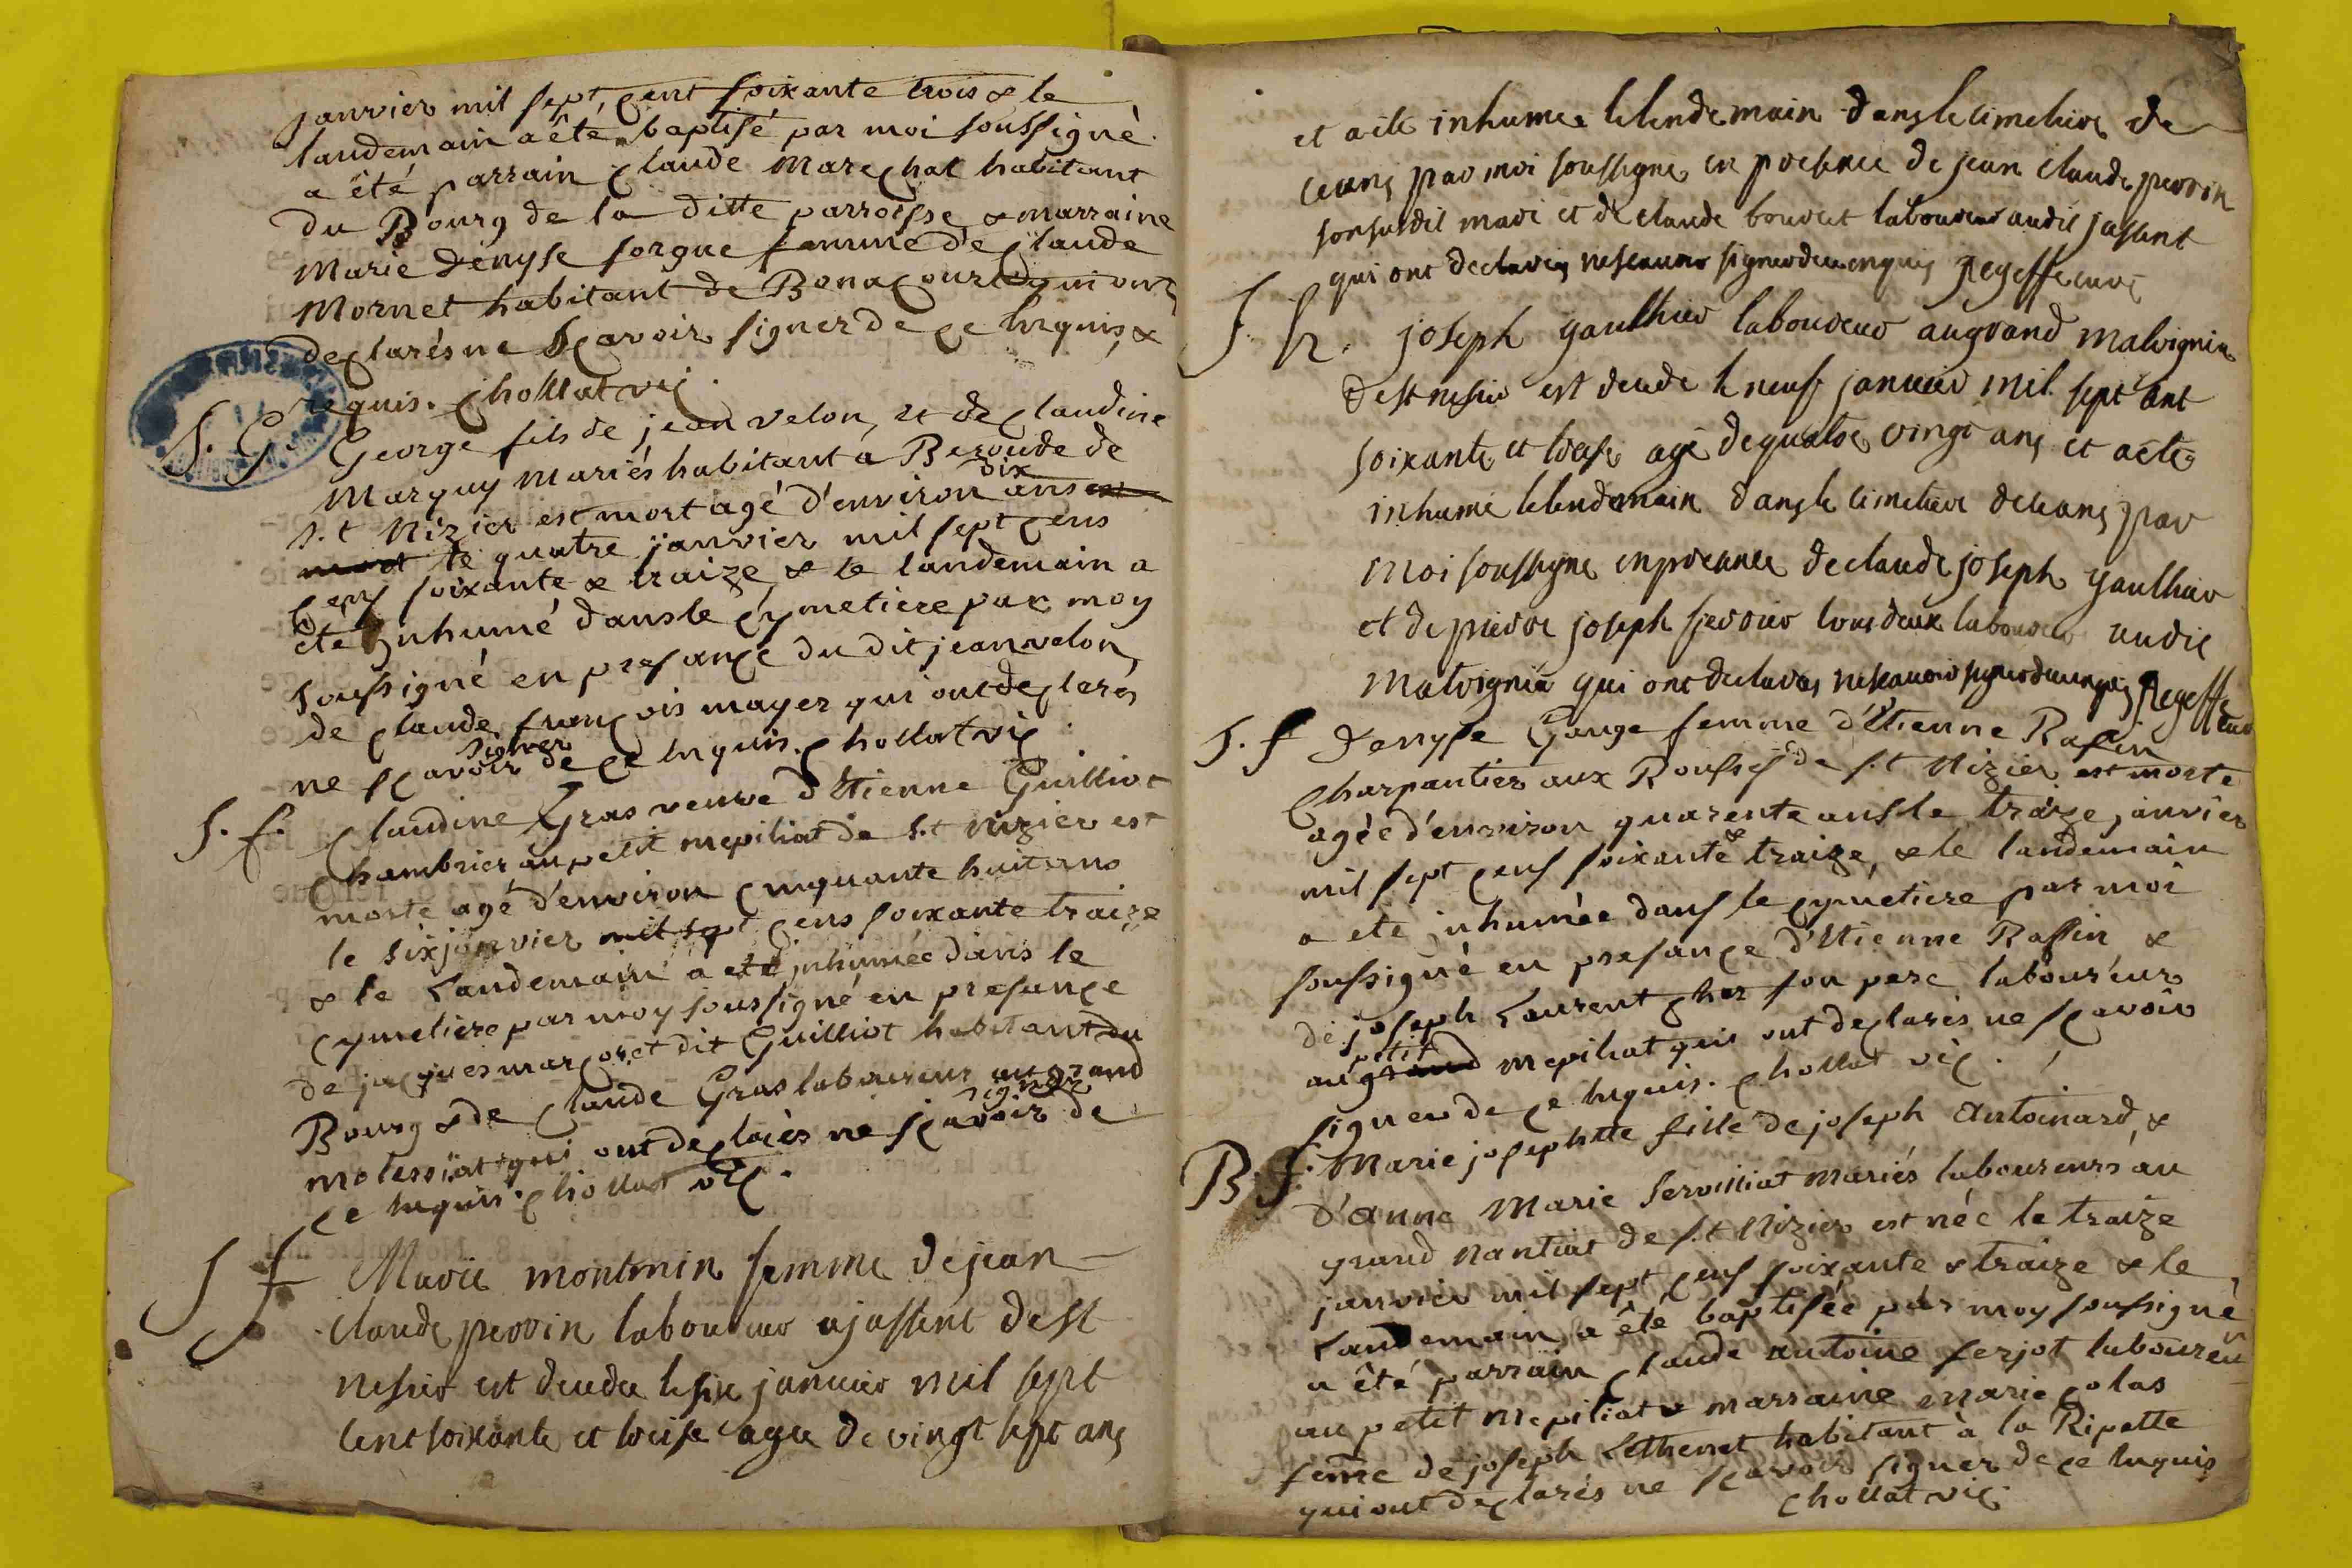 janvier mil sept cent soixante trois & le
landemain a êté baptisé par moi soussigné
a êté parrain Claude Marechal habitant
du Bourg de la ditte parroisse & marraine
Marie Denyse sorgue femme de Claude
Mornet habitant de Bonacourt qui ont
declarés ne sçavoir signer de ce Enquis &
requis. Chollat vic
S. G. George fils de jean velon, et de Claudine
Marguy mariés habitant à Beroude de
dix
s.t Nizier est mort agé d'environ ans est
mort le quatre janvier mil sept cens
cens soixante & traize & le landemain a
êté inhumé dans le cymetiere par moy
soussigné en presance du dit jean velon,
de Claude françois mayer qui ont declarés
signer
ne sçavoir de ce Enquis. Chollat vic.
S. f. Claudine Gras veuve d'Etienne Guilliot
Chambrier au petit mepiliat de s.t nizier est
morte agé d'environ cinquante huit ans
le six janvier mil sept cens soixante traize
& le Landemain a eté inhumée dans le
cymetiere par moy soussigné en presance
de jacques marcoret dit Guilliot habitant du
Bourg & de Claude Gras laboureur au grand
signer
molessiat qui ont declarés ne sçavoir de
ce Enquis. Chollat vic.
S f Marie montmin femme de jean
claude perrin laboureur a jassent de st
nesier est deudee le six janvier mil sept
cent soixante et treise agee de vingt sept ans
et a ete inhumee le lendemain dans le cimetiere de
ceans par moi soussigne en presence de jean claude perrin
son susdit mari et de claude bouvet laboureur audit jassent
qui ont declares ne scavoir signer de ce enquis Regeffe curé
S. h. joseph gaulthier laboureur au grand malvignia
de st nesier est deude le neuf janvier mil sept cent
soixante et treise agé de quatre vingt ans et a ete
inhumé le lendemain dans le cimetiere de ceans par
moi soussigne en presence de claude joseph gaulthier
et de pierre joseph tous deux laboureurs audit
malvignia qui ont declares ne scavoir signer de ce enquis Regeffe curé
S. f Denyse Gauge femme d'Etienne Rafin
Charpantier aux Rousses de s.t Nizier est morte
agée d'environ quarente ans le traize janvier
mil sept cens soixante & traize, & le landemain
a eté inhumée dans le cymetiere par moi
soussigné en presance d'Etienne Raffin &
de joseph Laurent cher son pere laboureur
petit
au grand mepiliat qui ont declarés ne sçavoir
signer de ce Enquis. Chollat vic.
B. f. Marie josephtte fille de joseph Antoinard, &
d'anne Marie servilliat mariés laboureurs au
grand nantiat de s.t Nizier est née le traize
janvier mil sept cens soixante & traize & le
Landemain a êté baptisée par moy soussigné
a êté parrain Claude antoine ferjot laboureu
au petit mepiliat & marraine marie Colas
feme de joseph Lethenet habitant à la Ripette
qui ont declarés ne sçavoir signer de ce Enquis
Chollat vic.